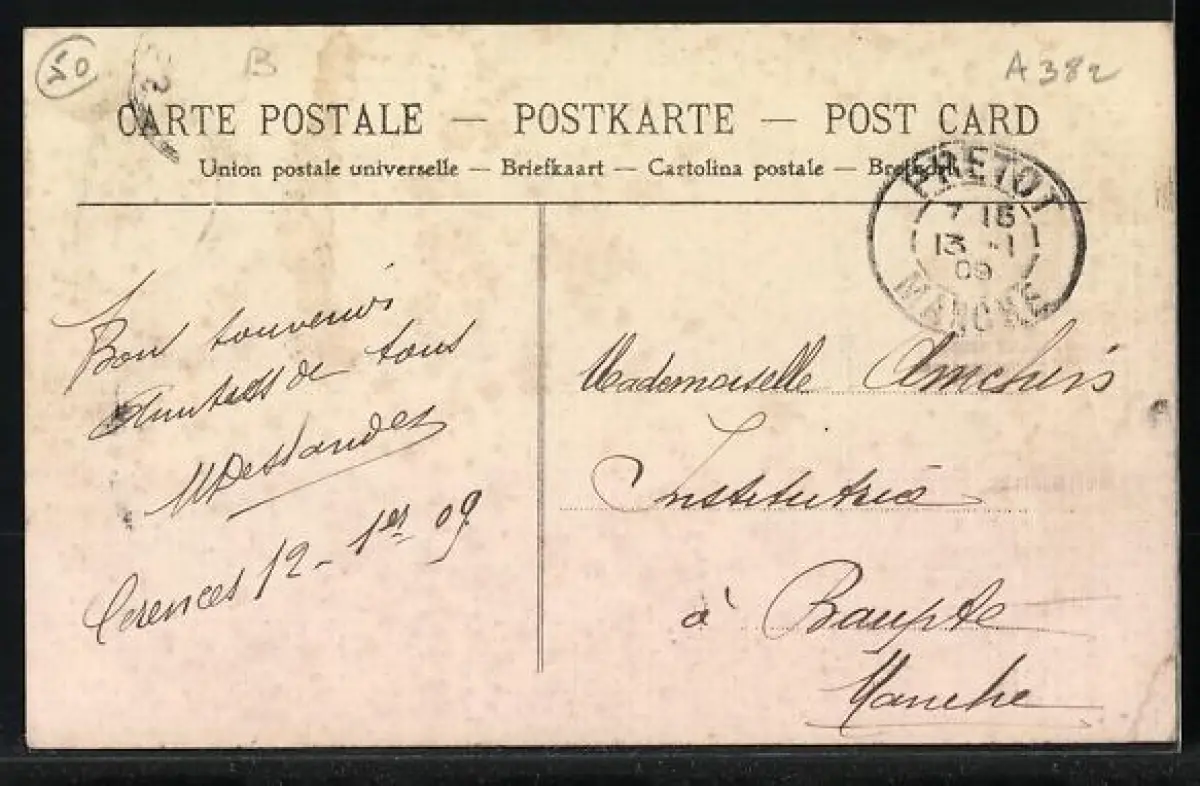 50
B
A382
CARTE POSTALE — POSTKARTE — POST CARD
Union postale universelle — Briefkaart — Cartolina postale —
PRETOT
7 15
13 -1
09
MANCHE
Bon souvenirs
de tous
MDeslandes
Cerences 12 - 1er 09
Mademoiselle
Institutrice
à Baupte
Manche